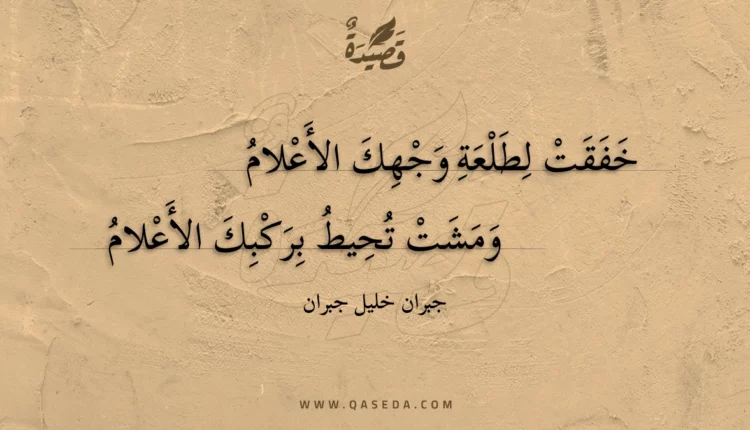 قَصِيدَةٌ
خَفَقَتْ لِطَلْعَةِ وَجْهِكَ الأَعْلامُ
وَمَشَتْ تُحِيطُ بِرَكْبِكَ الأَعْلامُ
جبران خليل جبران
WWW.QASEDA.COM